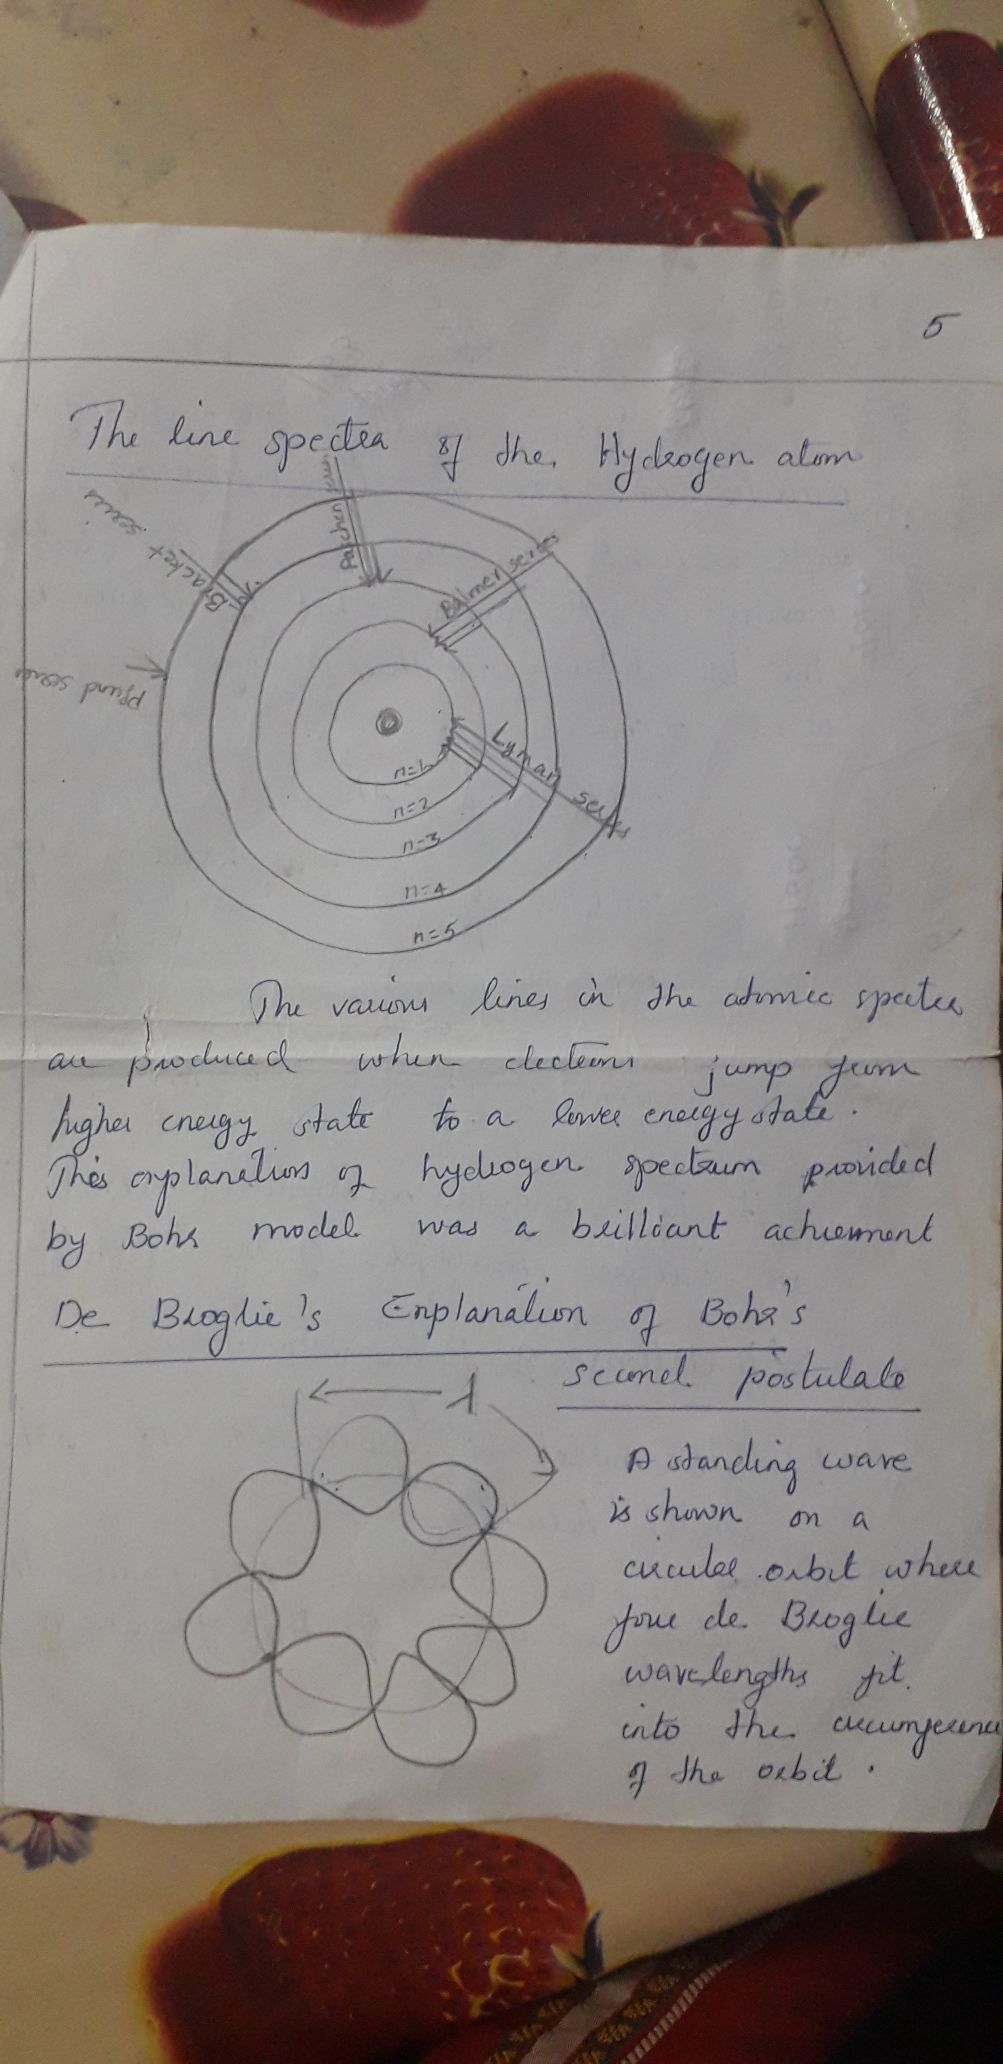 5
The line spectra of the Hydrogen atom
Bracket series
Paschen series
Balmer series
Pfund series
Lyman series
n=1
n=2
n=3
n=4
n=5
The various lines in the atomic spectra
are produced when electrons jump from
higher energy state to a lower energy state.
This explanation of hydrogen spectrum provided
by Bohr model was a brilliant achievement
De Broglie's Explanation of Bohr's
second postulate
λ
A standing wave
is shown on a
circular orbit where
four de Broglie
wavelengths fit
into the circumference
of the orbit.